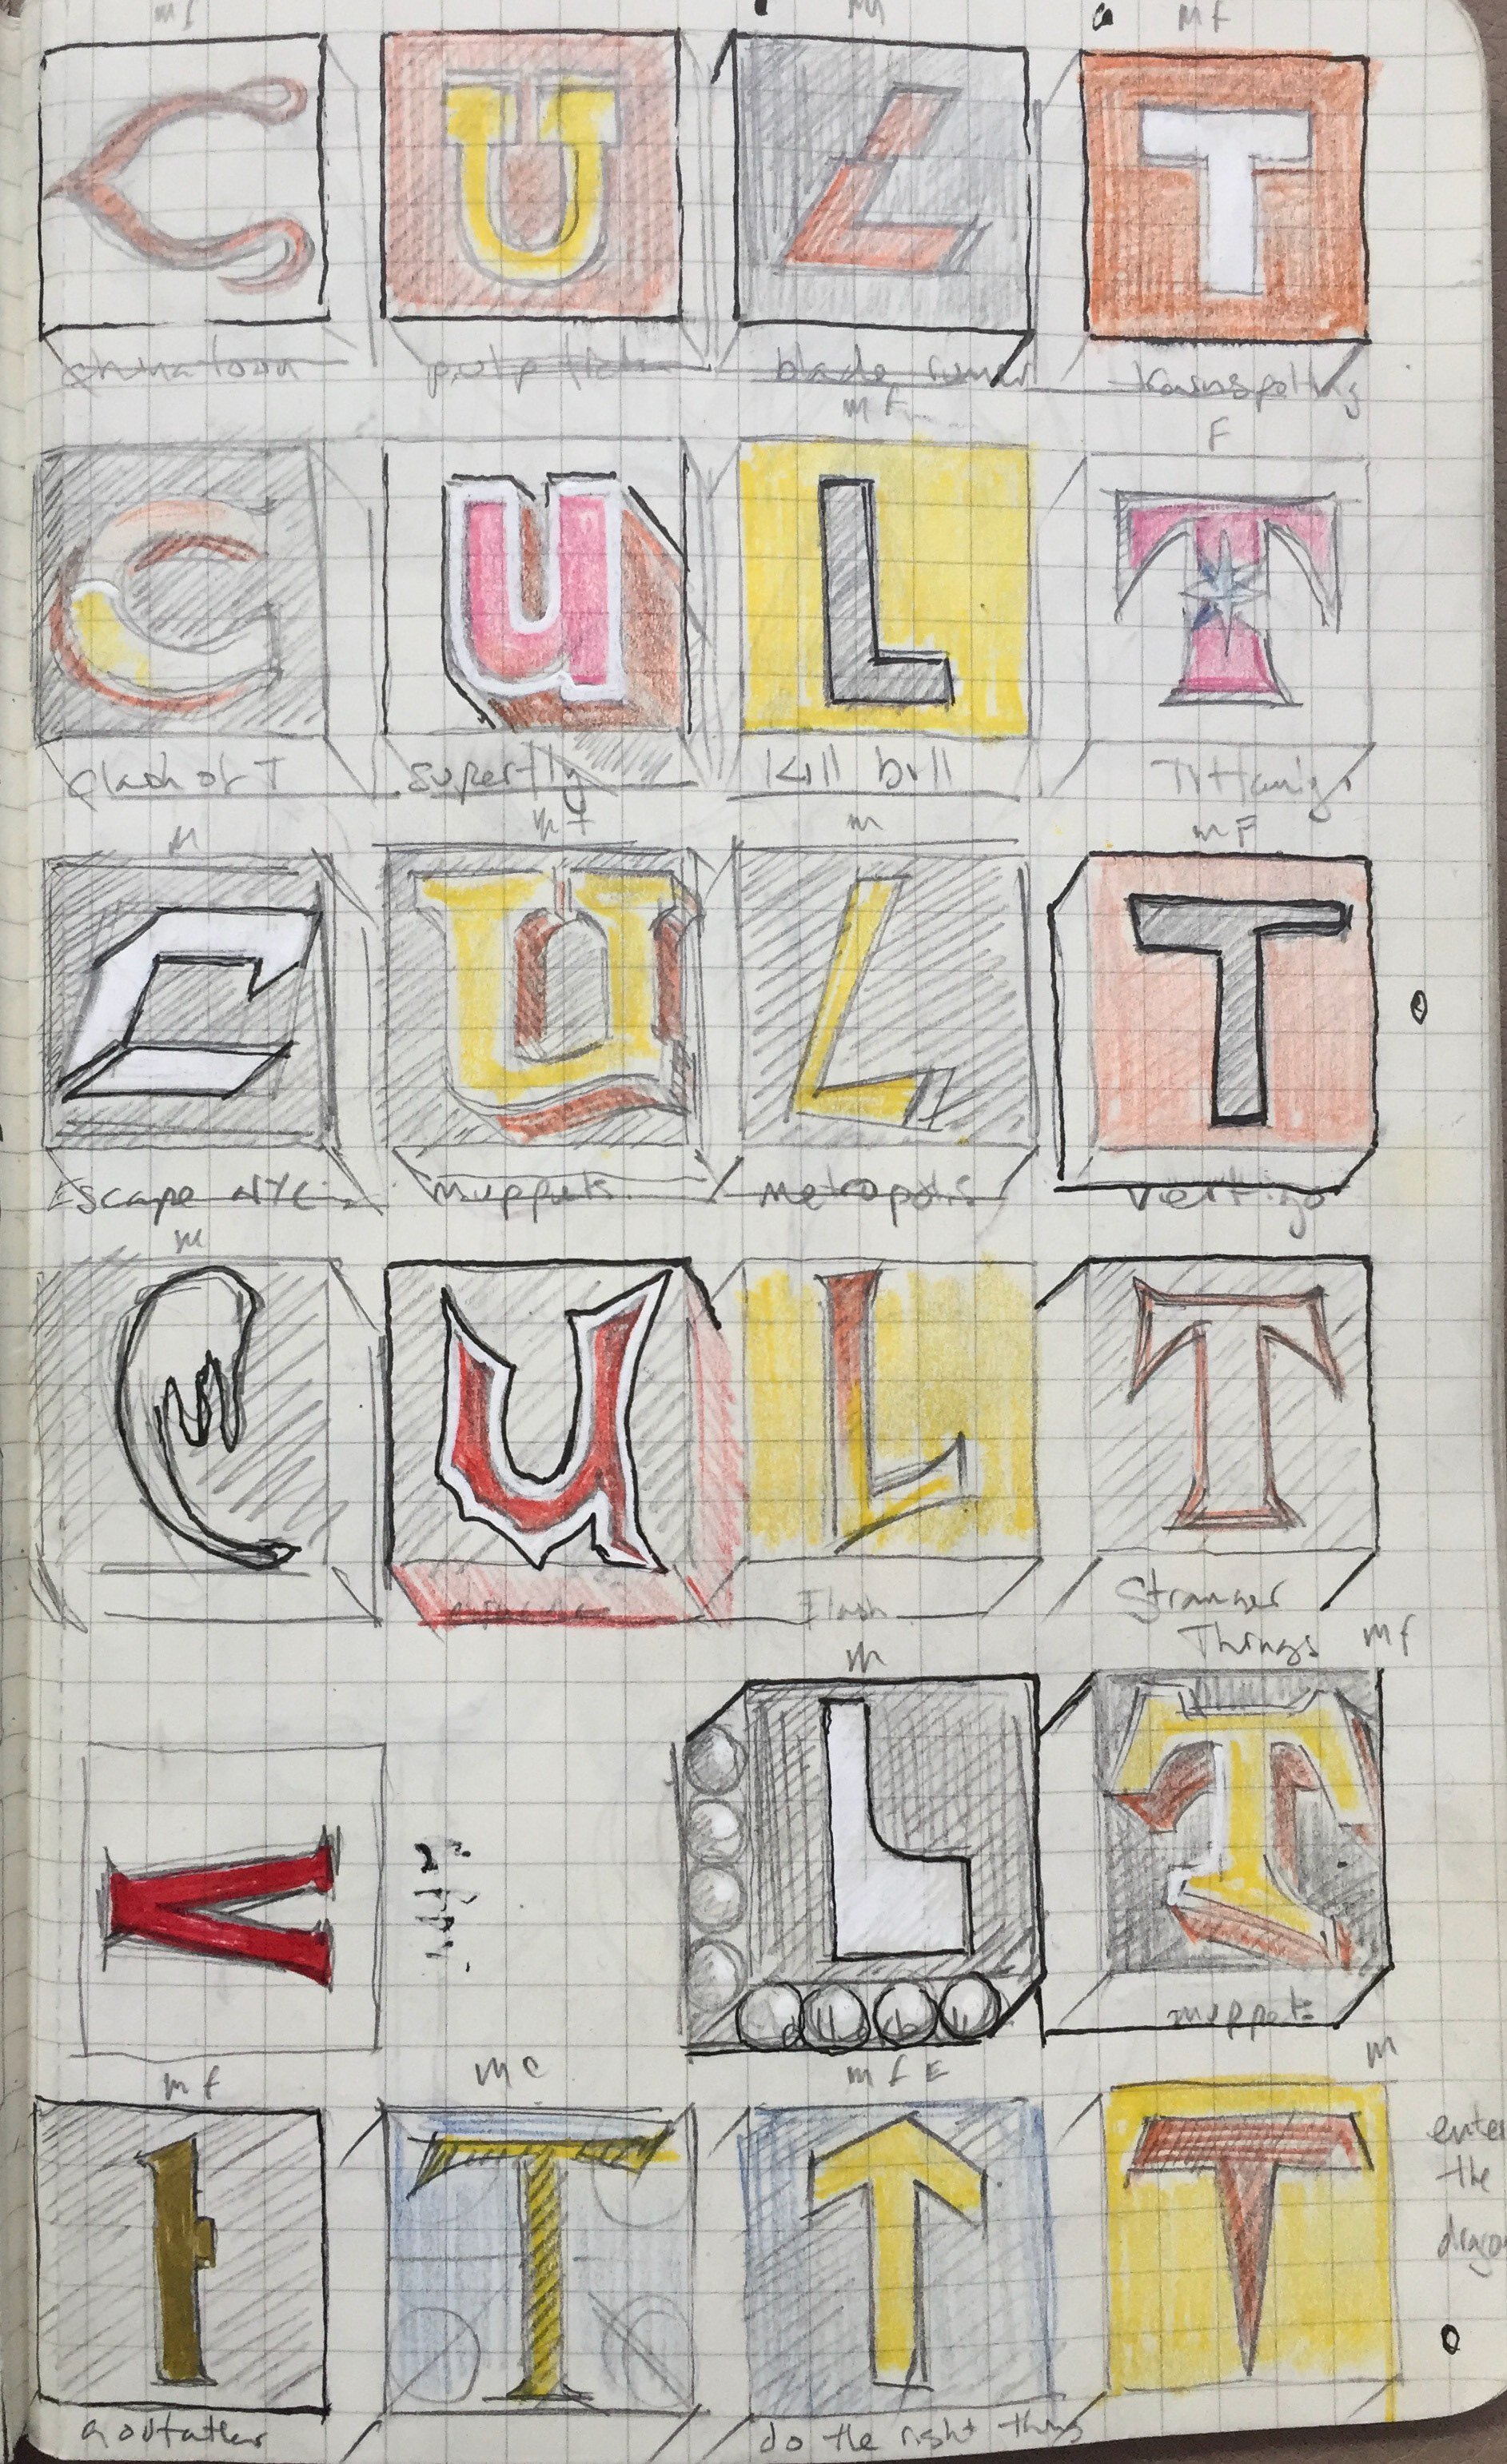 mf
M
MF
C U L T
chinatown pulp fiction blade runner trainspotting
mf F
C U L T
Clash of T Superfly Kill bill
M mf m mF
C U L T
Escape NYC muppets Metropolis Vertigo
m
C U L T
Flash Stranger
Things mf
m
L T
muppets
mf mc mfE m
t T T T
enter
the
dragon
Godfather do the right thing